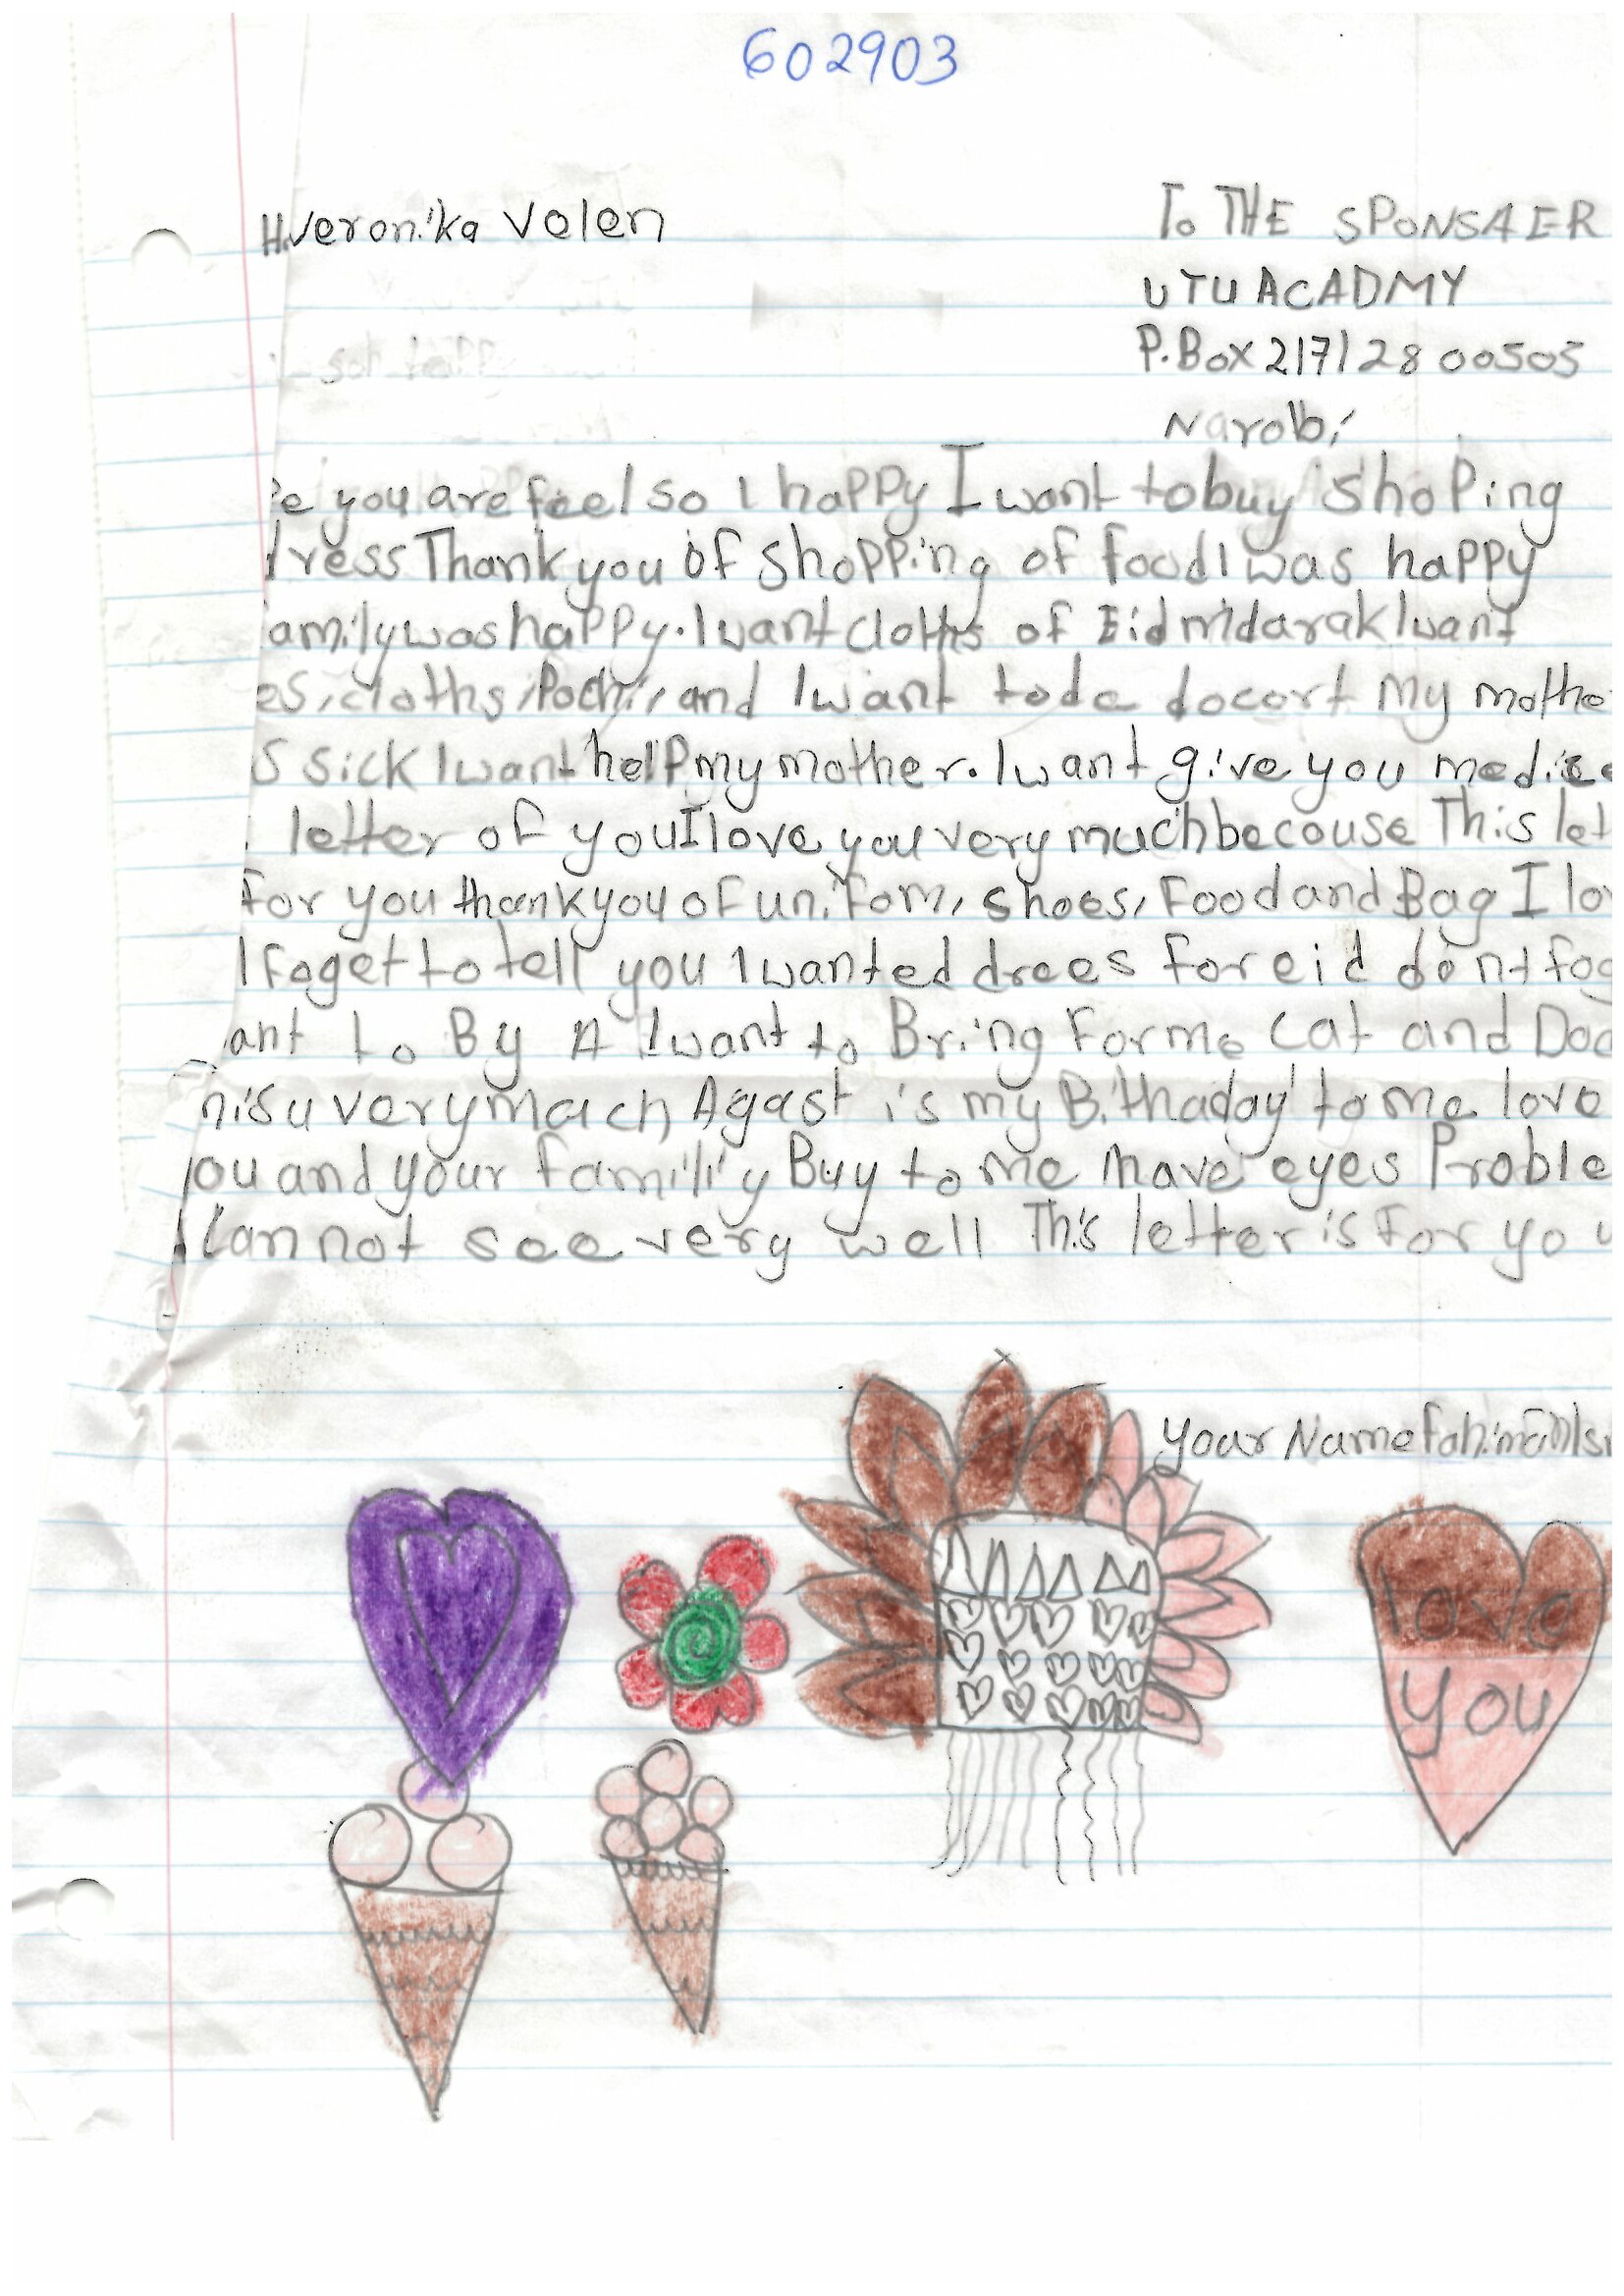 602903
H.Veronika Volen
To THE SPONSAER
UTU ACADMY
P.Box 217128 00505
Narobi
you are feel so I happy I want to buy shoping
dress Thank you of shopping of food I was happy
family was happy. I want cloths of Eid midarak I want
cloths, and I want to de docort My mothe
S sick I want help my mother. I want give you
letter of you I love you very much becouse This let
For you thank you of unifom, shoes, Food and Bag I lo
I foget to tell you I wanted drees for eid dont fog
ant to By A I want to Bring For me cat and
misu very mach Agast is my Bithaday to me love
you and your familiy Buy to me have eyes Proble
Cannot see very well This letter is For you
your Name
love
you